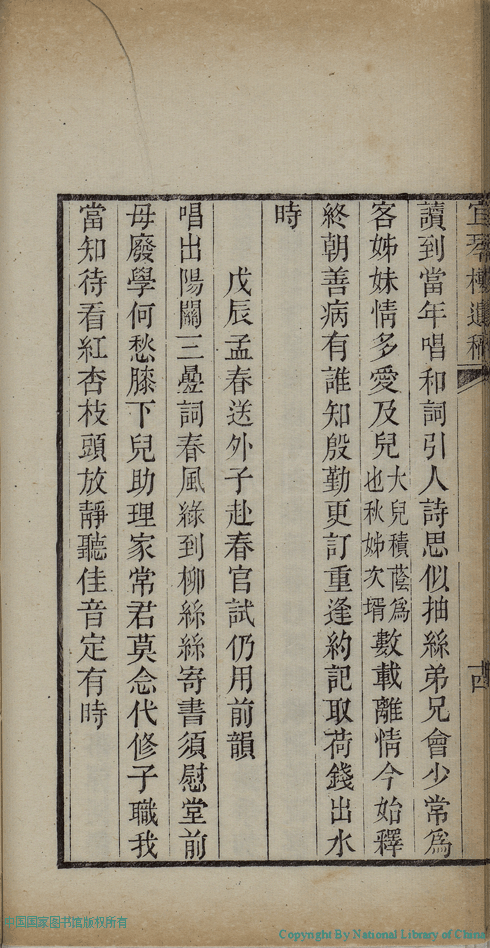 宜琴樓遺稿
十四
讀到當年唱和詞引人詩思似抽絲弟兄會少常爲
客姊妹情多愛及兒大兒積蔭爲也秋姊次壻數載離情今始釋
終朝善病有誰知殷勤更訂重逢約記取荷錢出水
時
戊辰孟春送外子赴春官試仍用前韻
唱出陽關三疊詞春風綠到柳絲絲寄書須慰堂前
毋廢學何愁膝下兒助理家常君莫念代修子職我
當知待看紅杏枝頭放靜聽佳音定有時
国国家图书馆版权所有
Copyright By National Library of China